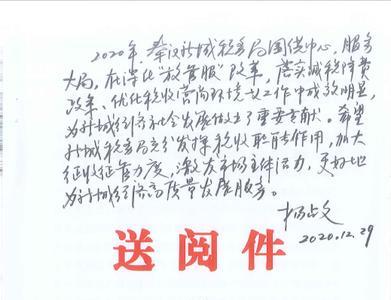 2020年,秦汉新城税务局围绕中心、服务
大局,在深化"放管服"改革,落实减税降费
政策、优化税收营商环境等工作中成效明显,
为新城经济社会发展做出了重要贡献。希望
新城税务局充分发挥税收职能作用,加大
征收征管力度,激发市场主体活力,更好地
为新城经济高质量发展服务。
2020.12.29
送阅件